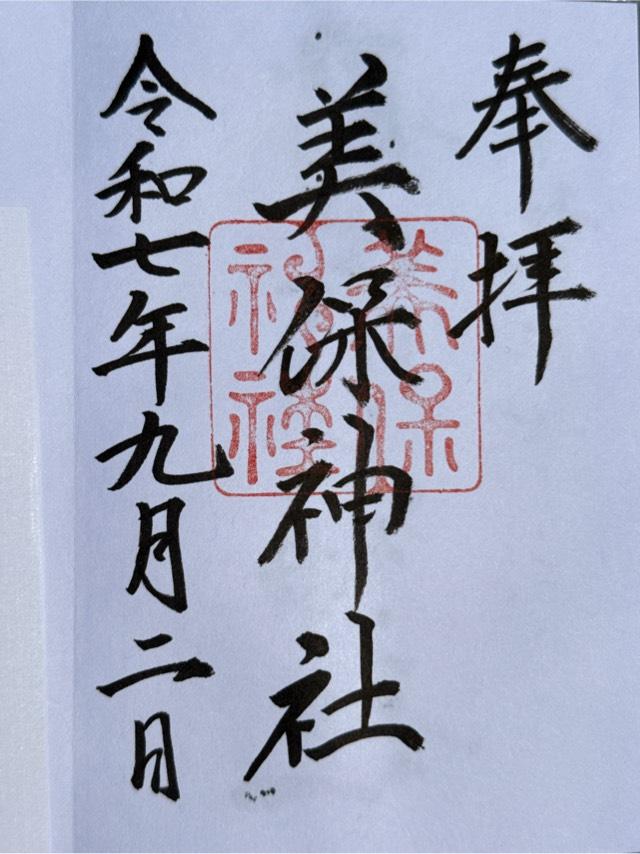 奉拝
美保神社
美保
神社
令和七年九月二日